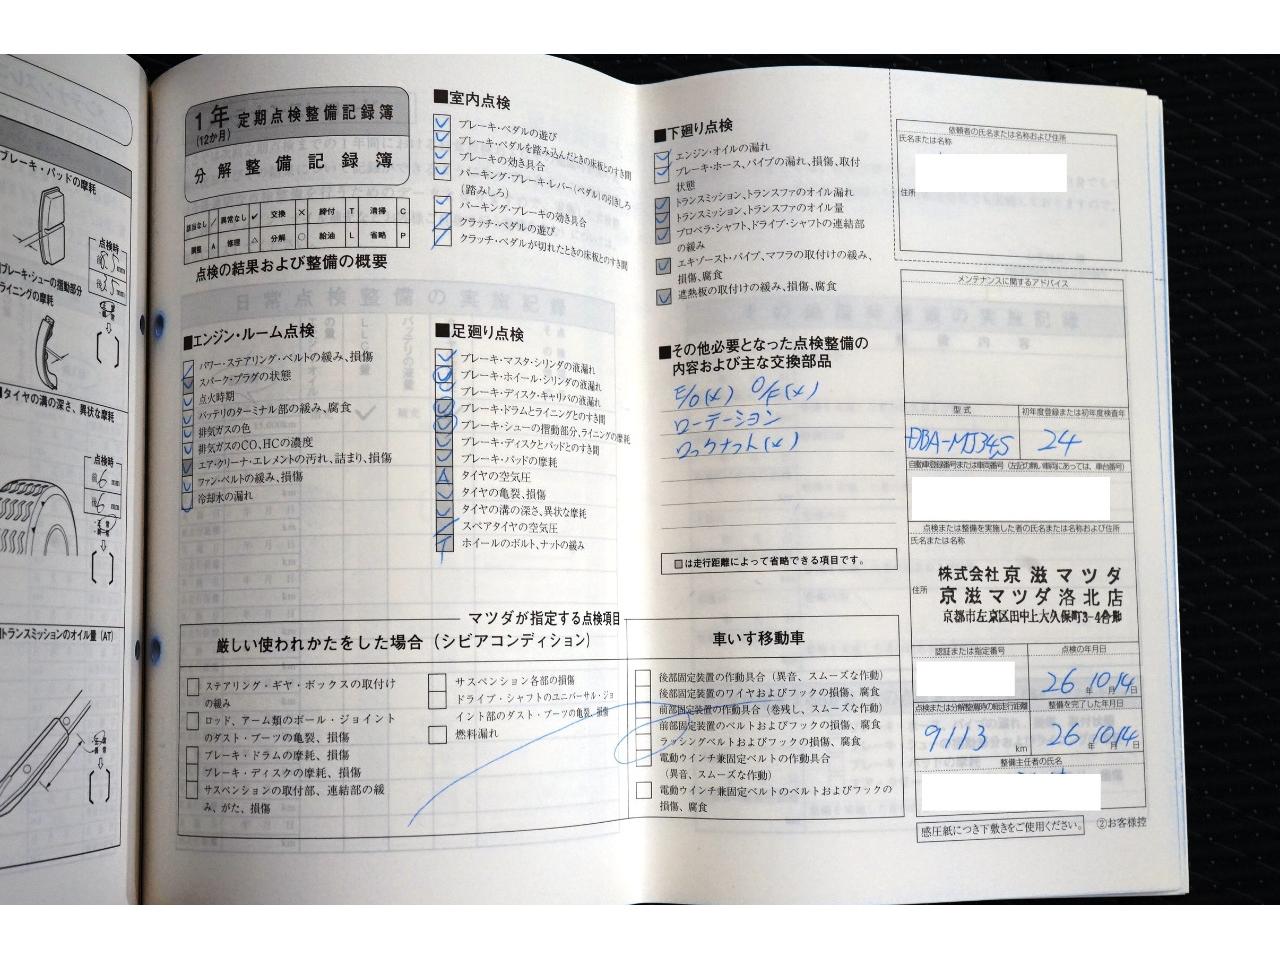 ブレーキ・パッドの摩耗
点検時
ブレーキ・シューの摺動部分
ライニングの摩耗
タイヤの溝の深さ、異状な摩耗
点検時
前 6 mm
後 6 mm
トランスミッションのオイル量 (AT)
1年 定期点検整備記録簿
(12か月)
分解整備記録簿
該当なし / 異常なし ✓ 交換 × 締付 T 清掃 C
調整 A 修理 △ 分解 ○ 給油 L 省略 P
点検の結果および整備の概要
■エンジン・ルーム点検
パワー・ステアリング・ベルトの緩み、損傷
スパーク・プラグの状態
点火時期
バッテリのターミナル部の緩み、腐食
排気ガスの色
排気ガスのCO、HCの濃度
エア・クリーナ・エレメントの汚れ、詰まり、損傷
ファン・ベルトの緩み、損傷
冷却水の漏れ
■室内点検
ブレーキ・ペダルの遊び
ブレーキ・ペダルを踏み込んだときの床板とのすき間
ブレーキの効き具合
パーキング・ブレーキ・レバー(ペダル)の引きしろ
(踏みしろ)
パーキング・ブレーキの効き具合
クラッチ・ペダルの遊び
クラッチ・ペダルが切れたときの床板とのすき間
■足廻り点検
ブレーキ・マスタ・シリンダの液漏れ
ブレーキ・ホイール・シリンダの液漏れ
ブレーキ・ディスク・キャリパの液漏れ
ブレーキ・ドラムとライニングとのすき間
ブレーキ・シューの摺動部分、ライニングの摩耗
ブレーキ・ディスクとパッドとのすき間
ブレーキ・パッドの摩耗
タイヤの空気圧
タイヤの亀裂、損傷
タイヤの溝の深さ、異状な摩耗
スペアタイヤの空気圧
ホイールのボルト、ナットの緩み
■下廻り点検
エンジン・オイルの漏れ
ブレーキ・ホース、パイプの漏れ、損傷、取付
状態
トランスミッション、トランスファのオイル漏れ
トランスミッション、トランスファのオイル量
プロペラ・シャフト、ドライブ・シャフトの連結部
の緩み
エキゾースト・パイプ、マフラの取付けの緩み、
損傷、腐食
遮熱板の取付けの緩み、損傷、腐食
■その他必要となった点検整備の
内容および主な交換部品
E/O(×) O/F(×)
ローテーション
ロックナット(×)
■は走行距離によって省略できる項目です。
マツダが指定する点検項目
厳しい使われかたをした場合 (シビアコンディション)
ステアリング・ギヤ・ボックスの取付け
の緩み
ロッド、アーム類のボール・ジョイント
のダスト・ブーツの亀裂、損傷
ブレーキ・ドラムの摩耗、損傷
ブレーキ・ディスクの摩耗、損傷
サスペンションの取付部、連結部の緩
み、がた、損傷
サスペンション各部の損傷
ドライブ・シャフトのユニバーサル・ジョ
イント部のダスト・ブーツの亀裂、損傷
燃料漏れ
車いす移動車
後部固定装置の作動具合 (異音、スムーズな作動)
後部固定装置のワイヤおよびフックの損傷、腐食
前部固定装置の作動具合 (巻残し、スムーズな作動)
前部固定装置のベルトおよびフックの損傷、腐食
ラッシングベルトおよびフックの損傷、腐食
電動ウインチ兼固定ベルトの作動具合
(異音、スムーズな作動)
電動ウインチ兼固定ベルトのベルトおよびフックの
損傷、腐食
依頼者の氏名または名称および住所
氏名または名称
住所
メンテナンスに関するアドバイス
型式 初年度登録または初年度検査年
DBA-MJ34S 24
自動車登録番号または車両番号
点検または整備を実施した者の氏名または名称および住所
氏名または名称
株式会社 京滋マツダ
住所 京滋マツダ洛北店
京都市左京区田中上大久保町3-4合地
認証または指定番号 点検の年月日
26年10月14日
点検または分解整備時の総走行距離 整備を完了した年月日
9113 km 26年10月14日
整備主任者の氏名
感圧紙につき下敷きをご使用ください。 ②お客様控